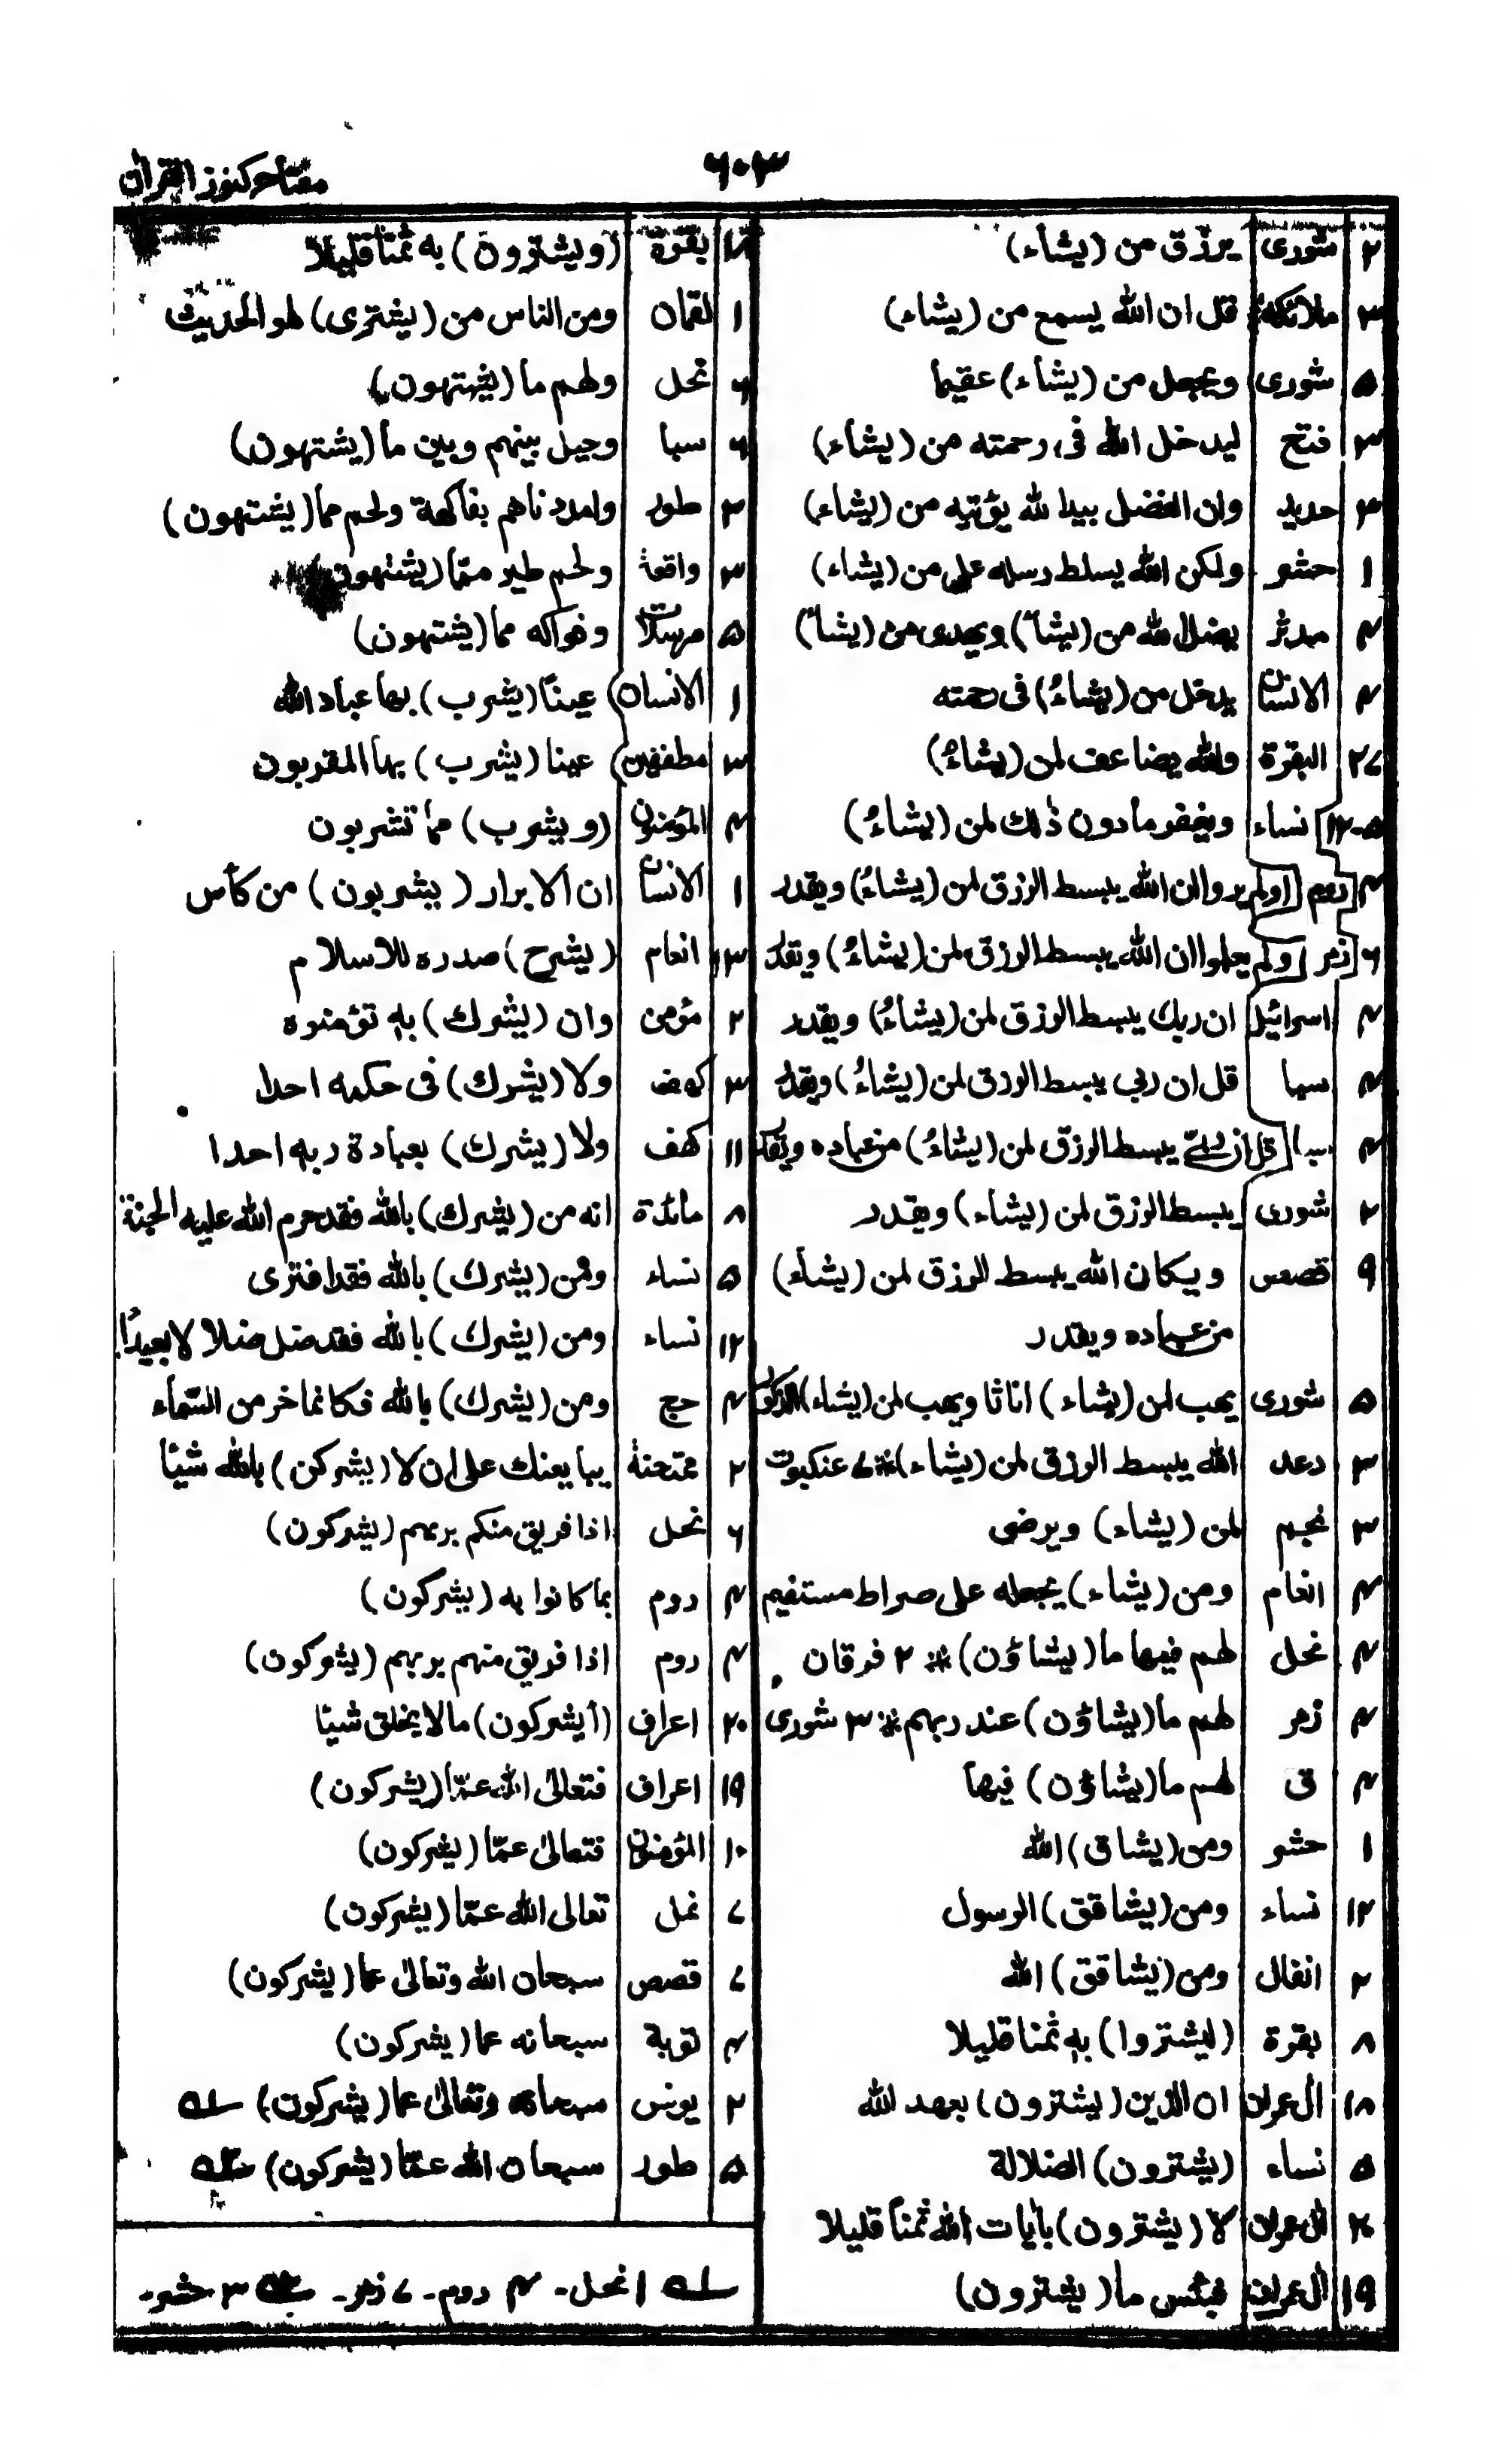 ۶۰۳
مفتاح کنوز القرآن
۲ شوری يرزق من (يشاء)
۳ ملائکة قل ان الله يسمع من (يشاء)
۵ شوری ويجعل من (يشاء) عقيما
۳ فتح ليدخل الله فى رحمته من (يشاء)
۳ حديد وان الفضل بيد الله يؤتيه من (يشاء)
۱ حشر ولكن الله يسلط رسله على من (يشاء)
۴ مدثر يضل الله من (يشآ) ويهدى من (يشآ)
۴ الانسان يدخل من (يشاءُ) فى رحمته
۲۷ البقرة والله يضاعف لمن (يشاءُ)
۵-۱۲ نساء ويغفر مادون ذٰلك لمن (يشاءُ)
۴ روم اولم يروا ان الله يبسط الرزق لمن (يشاءُ) ويقدر
۶ زمر ولم يعلموا ان الله يبسط الرزق لمن (يشاءُ) ويقدر
۴ اسرائيل ان ربك يبسط الرزق لمن (يشاءُ) ويقدر
۴ سبا قل ان ربى يبسط الرزق لمن (يشاءُ) ويقدر
۴ سبا قل ان ربّى يبسط الرزق لمن (يشاءُ) من عباده ويقدر
۲ شوری يبسط الرزق لمن (يشاء) ويقدر
۹ قصص ويكان الله يبسط الرزق لمن (يشاء)
من عباده ويقدر
۵ شوری يهب لمن (يشاء) اناثا ويهب لمن (يشاء) الذكور
۳ رعد الله يبسط الرزق لمن (يشاء) ※ ۷ عنكبوت
۳ نجم لمن (يشاء) ويرضى
۴ انعام ومن (يشاء) يجعله على صراط مستقيم
۴ نحل لهم فيها ما (يشاؤن) ※ ۲ فرقان
۴ زمر لهم ما (يشاؤن) عند ربهم ※ ۳ شورى
۴ ق لهم ما (يشاؤن) فيها
۱ حشر ومن (يشاق) الله
۱۲ نساء ومن (يشاقق) الرسول
۲ انفال ومن (يشاقق) الله
۸ بقرة (ليشتروا) به ثمنا قليلا
۱۸ اٰل عمران ان الذين (يشترون) بعهد الله
۵ نساء (يشترون) الضلالة
۲۰ اٰل عمران لا (يشترون) باٰيات الله ثمناً قليلا
۱۹ اٰل عمران فبئس ما (يشترون)
۲۱ بقرة (ويشترون) به ثمنا قليلا
۱ لقمان ومن الناس من (يشترى) لهو الحديث
۶ نحل ولهم ما (يشتهون)
۶ سبا وحيل بينهم وبين ما (يشتهون)
۳ طور وامددناهم بفاكهة ولحم مما (يشتهون)
۳ واقعة ولحم طير ممّا (يشتهون)
۵ مرسلات وفواكه مما (يشتهون)
۱ الانسان عيناً (يشرب) بها عباد الله
۳ مطففين عينا (يشرب) بها المقربون
۴ المؤمنون (ويشرب) مما تشربون
۱ الانسان ان الابرار (يشربون) من كأس
۱۳ انعام (يشرح) صدره للاسلام
۲ مؤمن وان (يشرك) به تؤمنوه
۳ كهف ولا (يشرك) فى حكمه احدا
۱۱ كهف ولا (يشرك) بعبادة ربه احدا
۸ مائدة انه من (يشرك) بالله فقد حرم الله عليه الجنة
۵ نساء ومن (يشرك) بالله فقد افترى
۱۲ نساء ومن (يشرك) بالله فقد ضل ضلالا بعيدًا
۴ حج ومن (يشرك) بالله فكانما خر من السّماء
۲ ممتحنة يبايعنك على ان لا (يشركن) بالله شيئا
۶ نحل اذا فريق منكم بربهم (يشركون)
۴ روم بما كانوا به (يشركون)
۴ روم اذا فريق منهم بربهم (يشركون)
۲۰ اعراف (أيشركون) ما لا يخلق شيئا
۱۹ اعراف فتعالى الله عمّا (يشركون)
۱۰ المؤمنون فتعالىٰ عمّا (يشركون)
۷ نمل تعالى الله عمّا (يشركون)
۷ قصص سبحان الله وتعالىٰ عما (يشركون)
۴ توبة سبحانه عما (يشركون)
۲ يونس سبحانه وتعالىٰ عما (يشركون) ؁۱
۵ طور سبحان الله عمّا (يشركون) ؁۲
؁۱ ۱ نحل- ۴ روم- ۷ زمر- ؁۲ ۳ حشر-